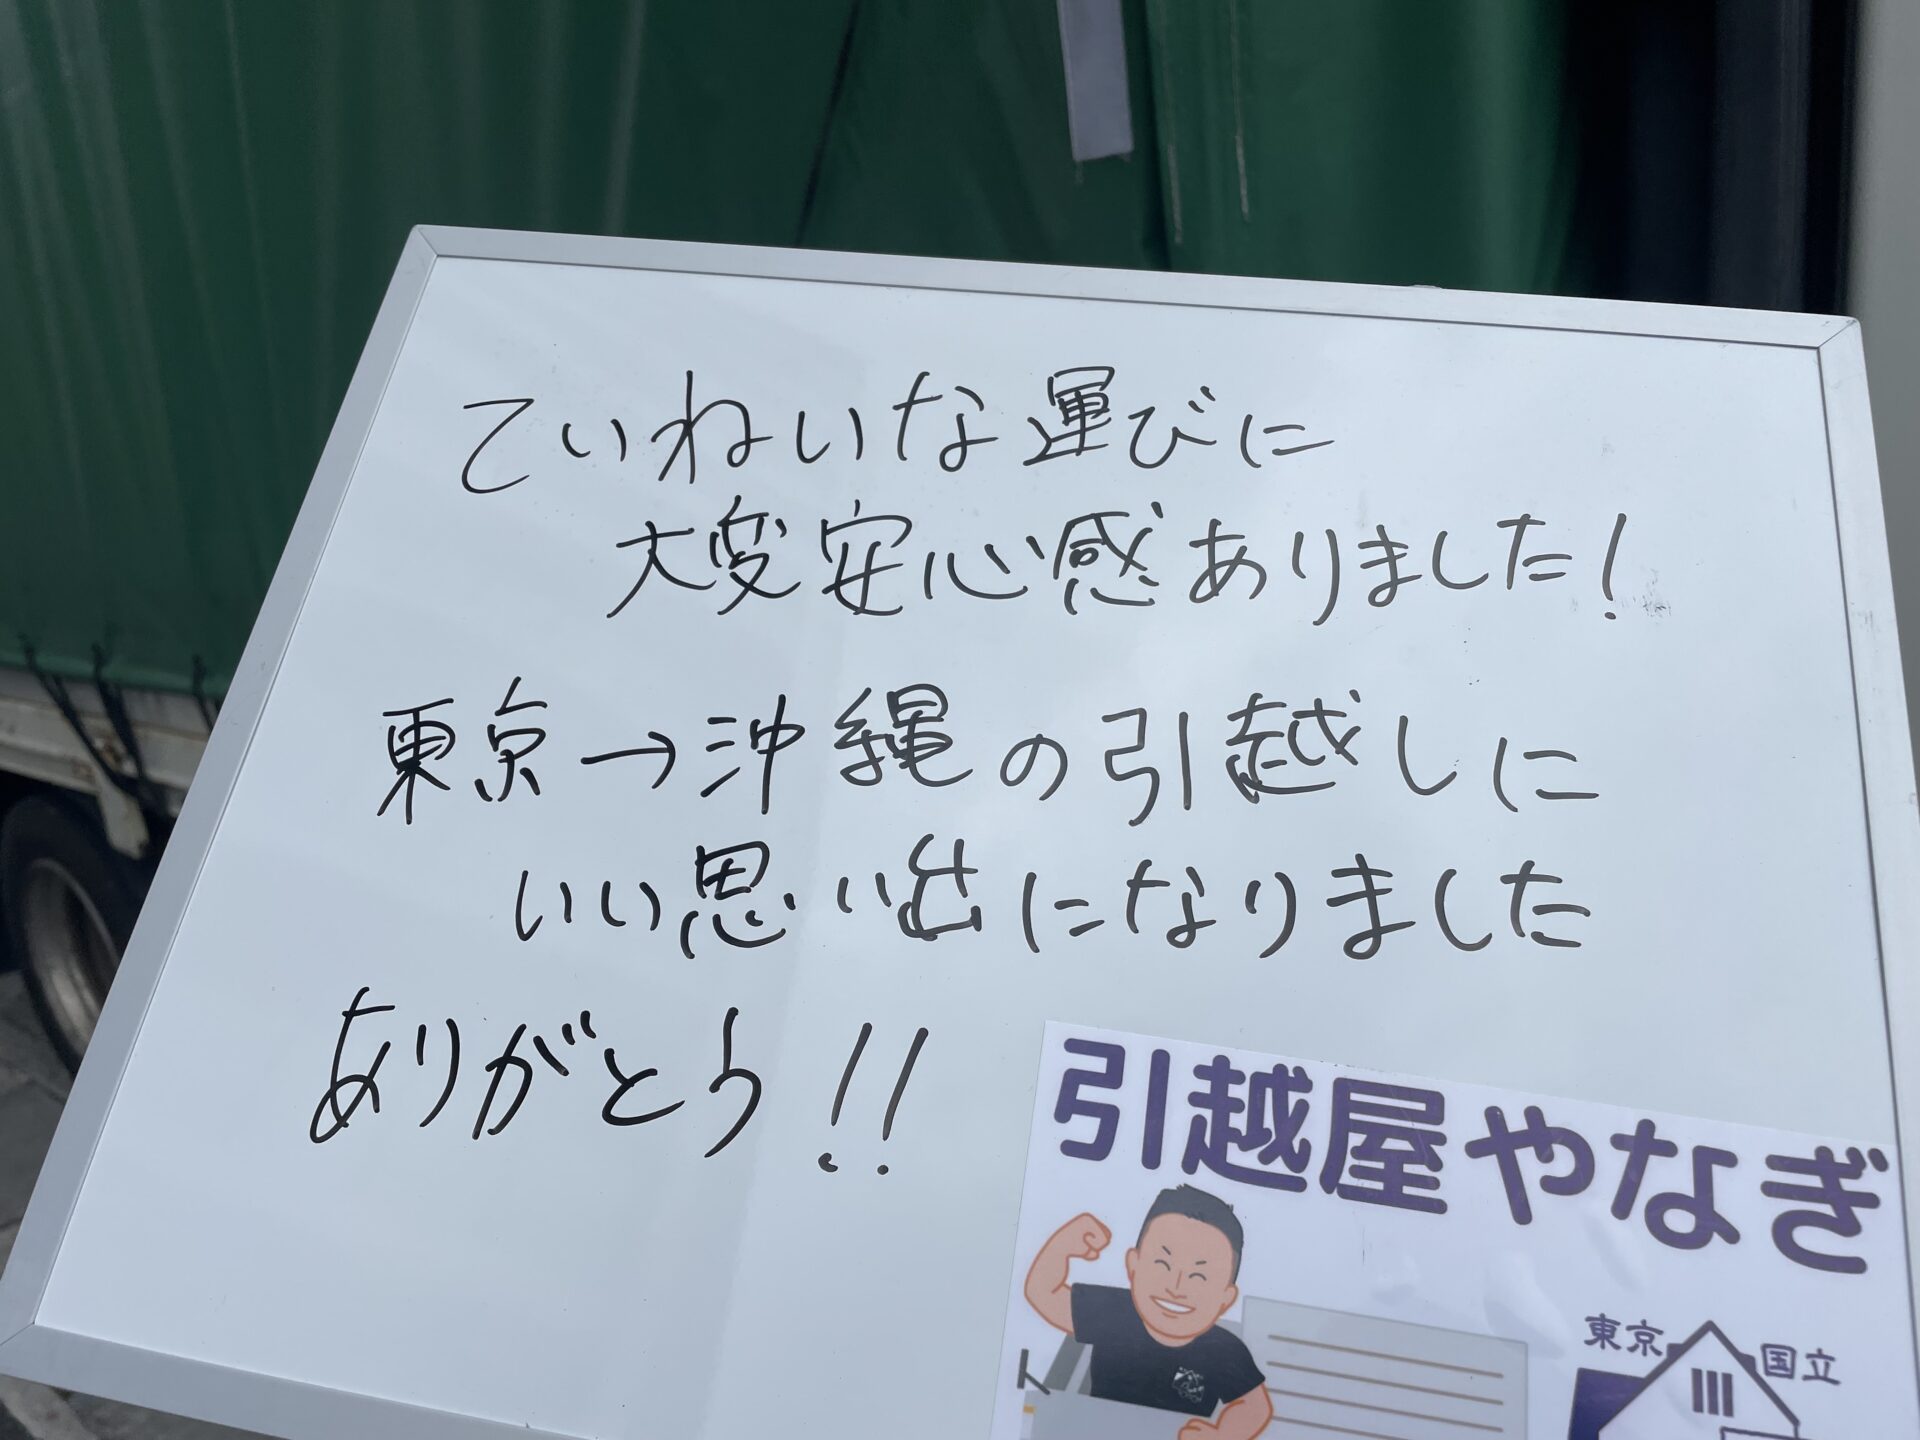 ていねいな運びに
大変安心感ありました!
東京→沖縄の引越しに
いい思い出になりました
ありがとう!!
引越屋やなぎ
東京 国立